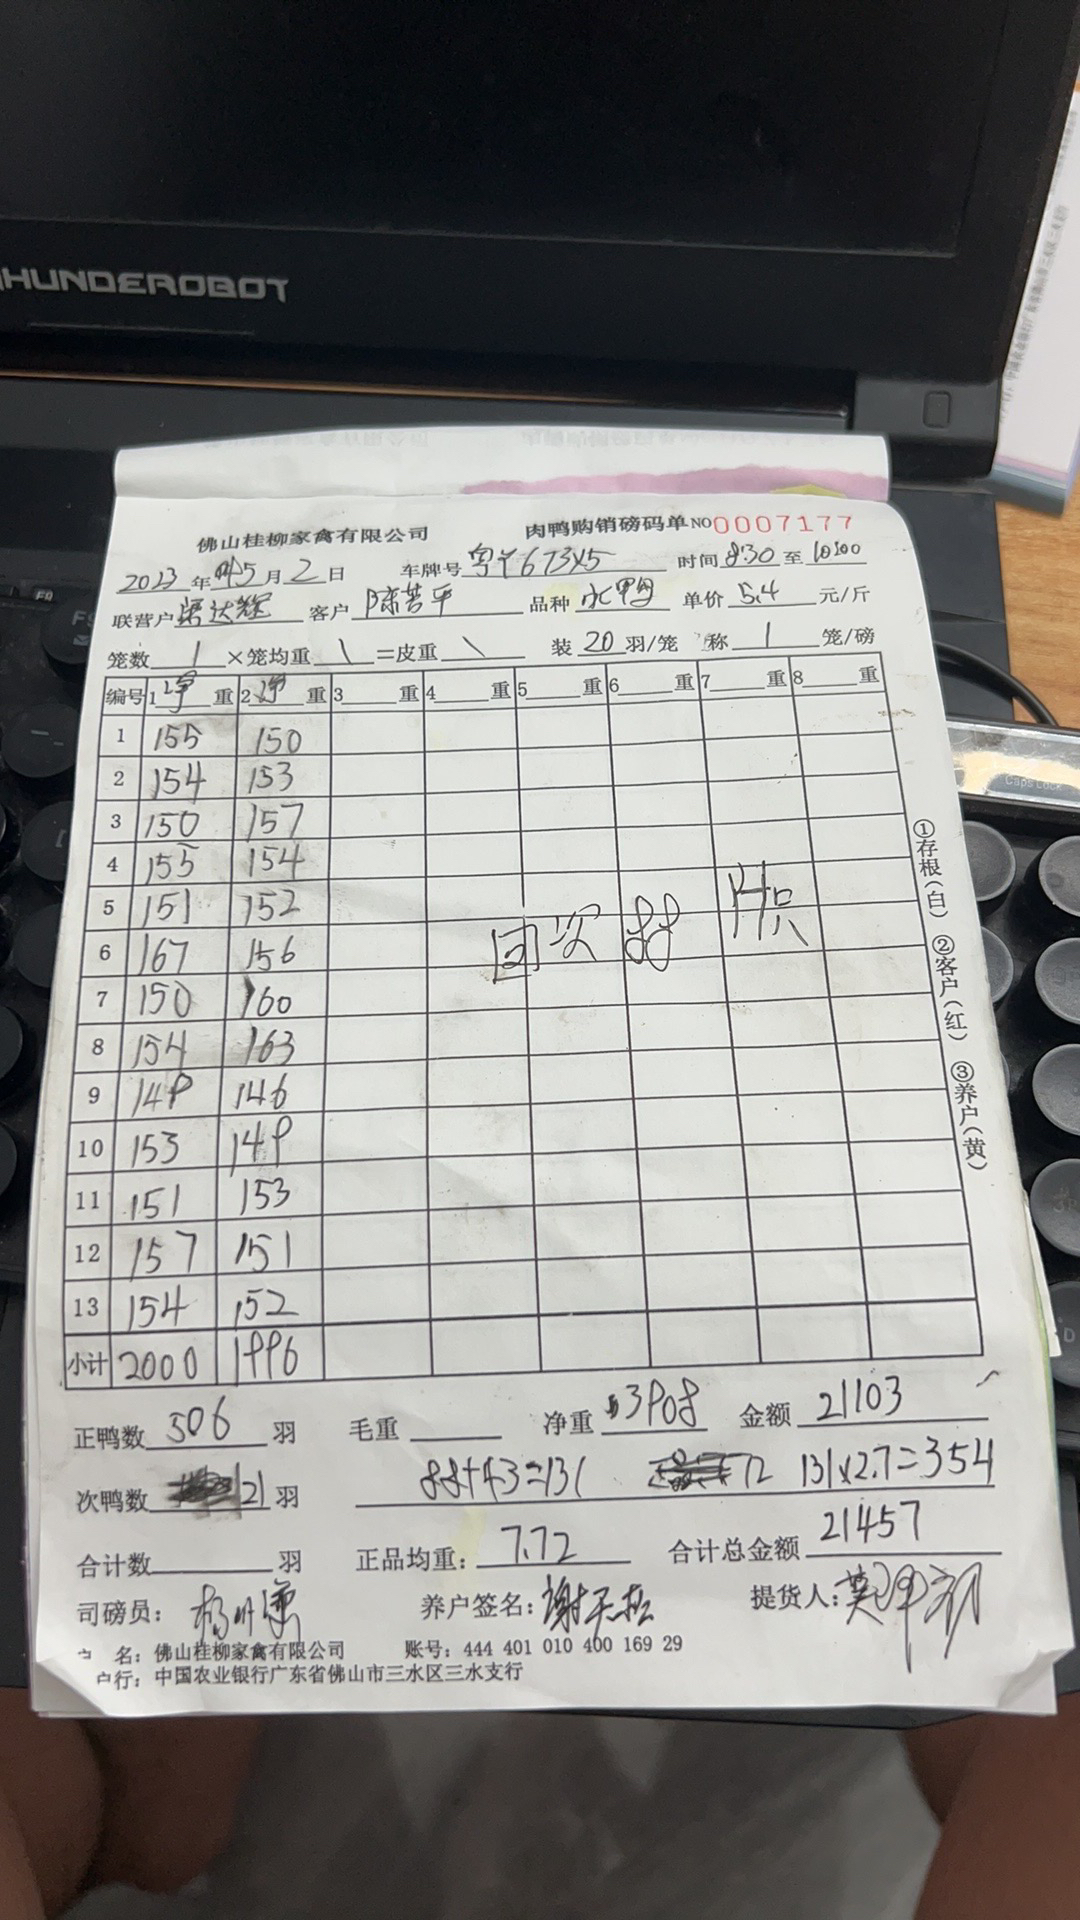 THUNDEROBOT
佛山桂柳家禽有限公司 肉鸭购销磅码单 NO 0007177
2023 年 5 月 2 日 车牌号 673X5 时间 8:30 至 10:00
联营户 梁达辉 客户 陈苦平 品种 水鸭 单价 5.4 元/斤
笼数 1 ×笼均重 \ =皮重 \ 装 20 羽/笼 称 1 笼/磅
编号 1 净 重 2 净 重 3 重 4 重 5 重 6 重 7 重 8 重
1 155 150
2 154 153
3 150 157
4 155 154
5 151 152
6 167 156
7 150 160
8 154 163
9 149 146
10 153 149
11 151 153
12 157 151
13 154 152
小计 2000 1996
回次 88 14只
①存根(白) ②客户(红) ③养户(黄)
正鸭数 506 羽 毛重 净重 3908 金额 21103
次鸭数 21 羽 88+43=131 72 131×2.7=354
合计数 羽 正品均重: 7.72 合计总金额 21457
司磅员: 养户签名: 谢天松 提货人:
名: 佛山桂柳家禽有限公司 账号: 444 401 010 400 169 29
户行: 中国农业银行广东省佛山市三水区三水支行
Caps Lock